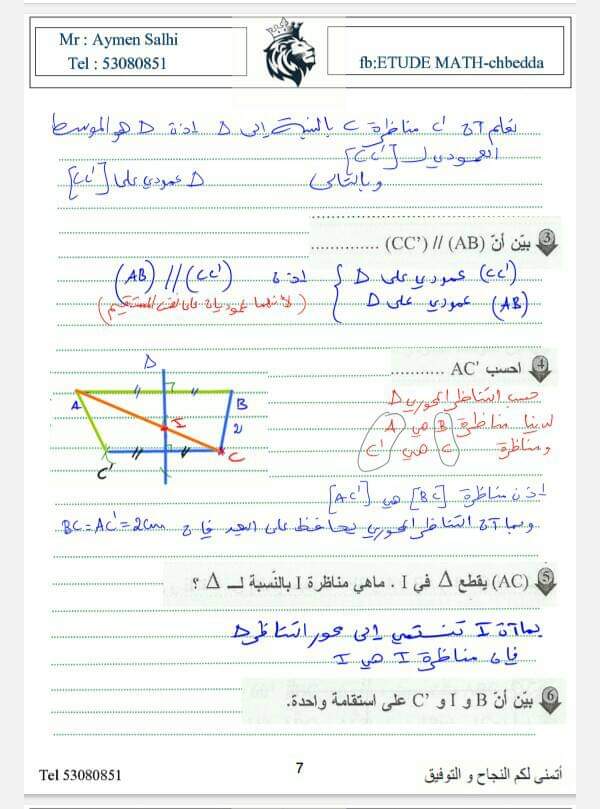 Mr : Aymen Salhi
Tel : 53080851
fb:ETUDE MATH-chbedda
نعلم أن C' مناظرة C بالنسبة إلى Δ إذن Δ هو الموسط
العمودي لـ [CC']
وبالتالي Δ عمودي على [CC']
3 بيّن أنّ (AB) // (CC') ..............
(CC') عمودي على Δ
(AB) عمودي على Δ
إذن (AB) // (CC')
(لأنهما عموديان على نفس المستقيم)
4 احسب AC' ...........
Δ
A
B
2
I
C
C'
حسب التناظر المحوري Δ
لدينا مناظرة B هي A
ومناظرة C هي C'
إذن مناظرة [BC] هي [AC']
وبما أن التناظر المحوري يحافظ على البعد فإن BC = AC' = 2cm
5 (AC) يقطع Δ في I . ماهي مناظرة I بالنّسبة لــ Δ ؟
بما أن I تنتمي إلى محور التناظر Δ
فإن مناظرة I هي I
6 بيّن أنّ B و I و C' على استقامة واحدة.
Tel 53080851
7
أتمنى لكم النجاح و التوفيق